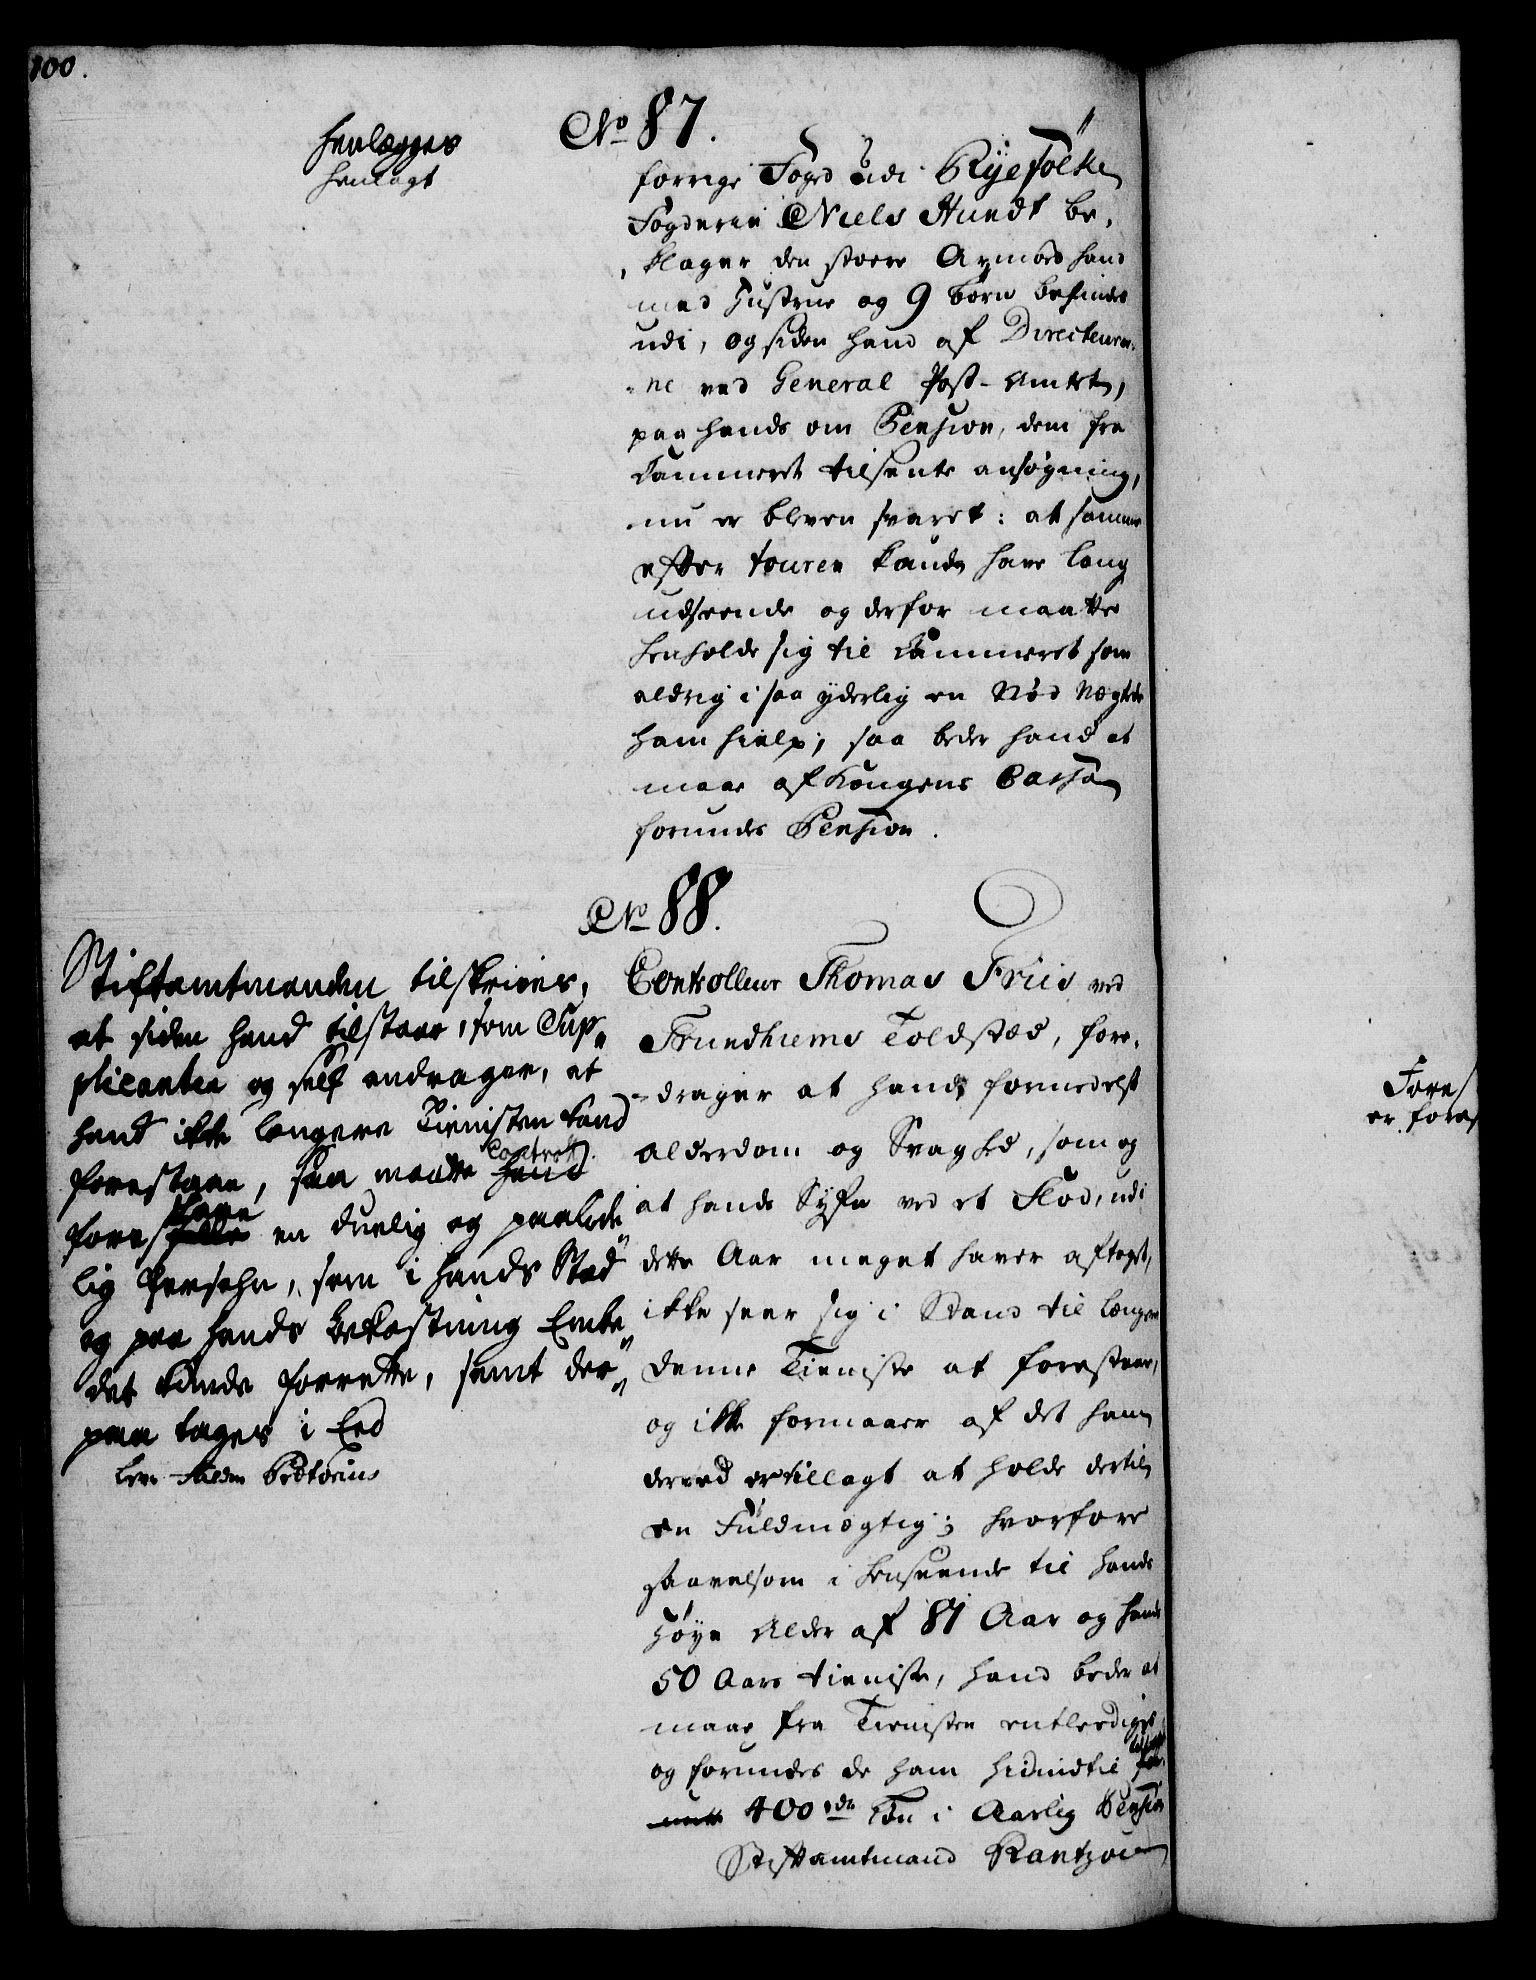 100.
No 87.
henlægges
henlagt
forrige Foged udi Ryefølke
Fogderie Niels Hundt be-
klager den stoere Armod hand
med Hustrue og 9 børn befindes
udi, og siden hand af Directeurer-
ne ved General Post-Amtet,
paa hands om Pension, dem fra
Cammeret tilsente ansøgning,
nu er bleven svaret: at samme
efter touren kunde have lang
udseende og derfor maatte
henholde sig til Cammeret som
aldrig i saa yderlig en Nød nægtede
ham hielp; saa beder hand at
maae af Kongens Cassa
forundes Pension.
No 88.
Stiftamtmanden tilskrives,
at siden hand tilstaar, som Sup-
plicanten og self andrager, at
hand ikke længere Tienisten kand
Controll.
forestaae, saa maatte hand
stille
fore en duelig og paalide-
lig Persohn, som i hands Sted
og paa hands bekostning Embe-
det kunde forrette, samt der-
paa tages i Eed
Controlleur Thomas Friis ved
Trundhiems Toldsted, fore-
drager at hand formedelst
alderdom og Svaghed, som og
at hands Syn ved et Flod, udi
dette Aar meget haver aftaget,
ikke seer sig i Stand til længere
denne Tieniste at forestaae,
og ikke formaaer af det ham
derved er tillagt at holde dertil
en Fuldmægtig; hvorfore
saavelsom i henseende til hands
Høye Alder af 81 Aar og hands
50 Aars tieniste, hand beder at
maae fra Tienisten entlediges
og forundes de ham hidindtil
400 rdr Løn i Aarlig Pension
Stiftamtmand Rantzou
Fores
er fores